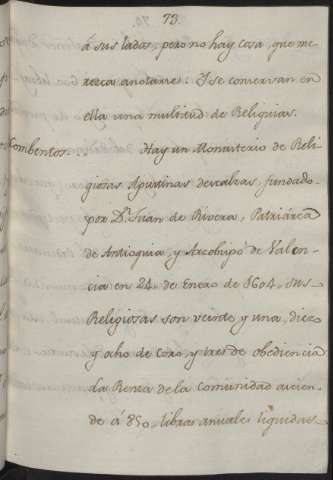 73.
á sus lados, pero no hay cosa, que me-
rezca anotarse. Y se conservan en
ella una multitud de Reliquias.
Combentos... Hay un Monasterio de Reli-
giosas Agustinas descalzas, fundado
por Dn. Juan de Rivera, Patriarca
de Antioquia, y Arzobispo de Valen-
cia en 24. de Enero de 1604. sus
Religiosas son veinte y una, diez
y ocho de Coro, y tres de obediencia
La Renta de la Comunidad accien-
de á 850. libras anuales liquidas